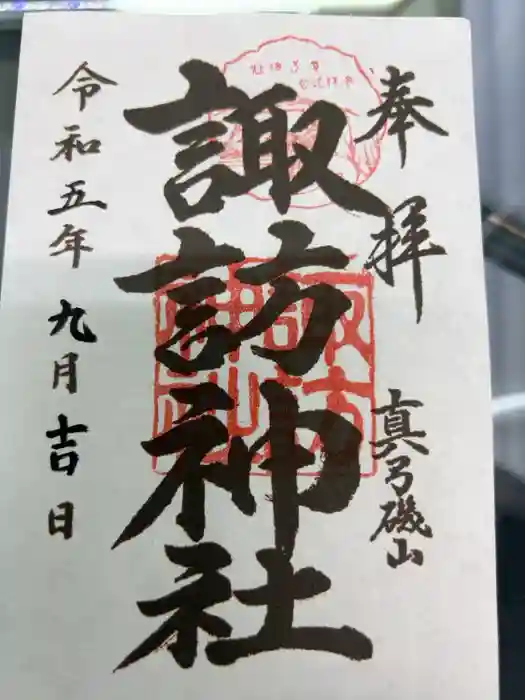 奉拝
真弓磯山
諏訪神社
令和五年九月吉日
諏訪神社